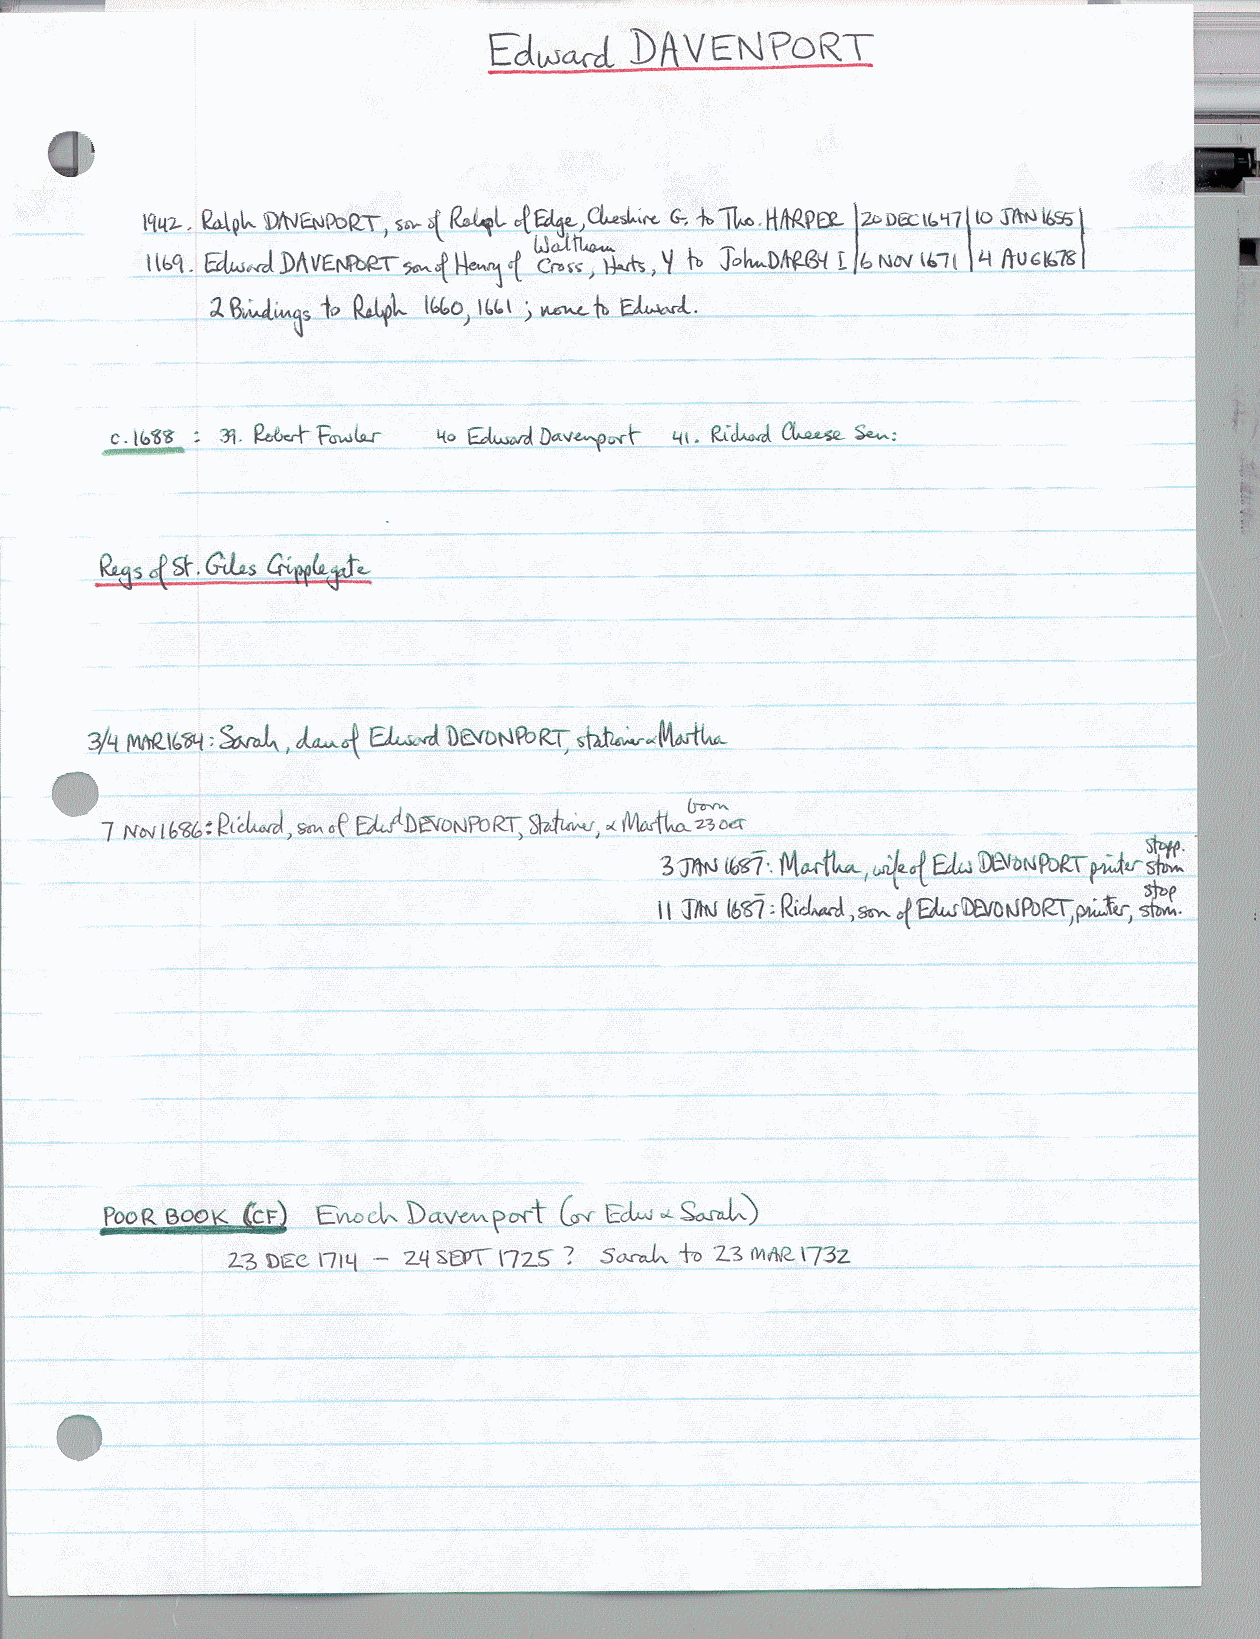 Edward DAVENPORT
1942. Ralph DAVENPORT, son of Ralph of Edge, Cheshire G. to Tho. HARPER | 20 DEC 1647 | 10 JAN 1655 |
1169. Edward DAVENPORT son of Henry of Waltham Cross, Harts, Y to John DARBY I | 6 NOV 1671 | 4 AUG 1678 |
2 Bindings to Ralph 1660, 1661 ; none to Edward.
c. 1688 : 39. Robert Fowler 40 Edward Davenport 41. Richard Cheese Sen:
Regs of St. Giles Cripplegate
3/4 MAR 1684 : Sarah, dau of Edward DEVONPORT, stationer & Martha
7 NOV 1686 : Richard, son of Edwd DEVONPORT, Stationer, & Martha born 23 OCT
3 JAN 1687 : Martha, wife of Edw DEVONPORT printer stopp. stom
11 JAN 1687 : Richard, son of Edw DEVONPORT, printer, stop stom.
POOR BOOK (CF) Enoch Davenport (or Edw & Sarah)
23 DEC 1714 – 24 SEPT 1725 ? Sarah to 23 MAR 1732